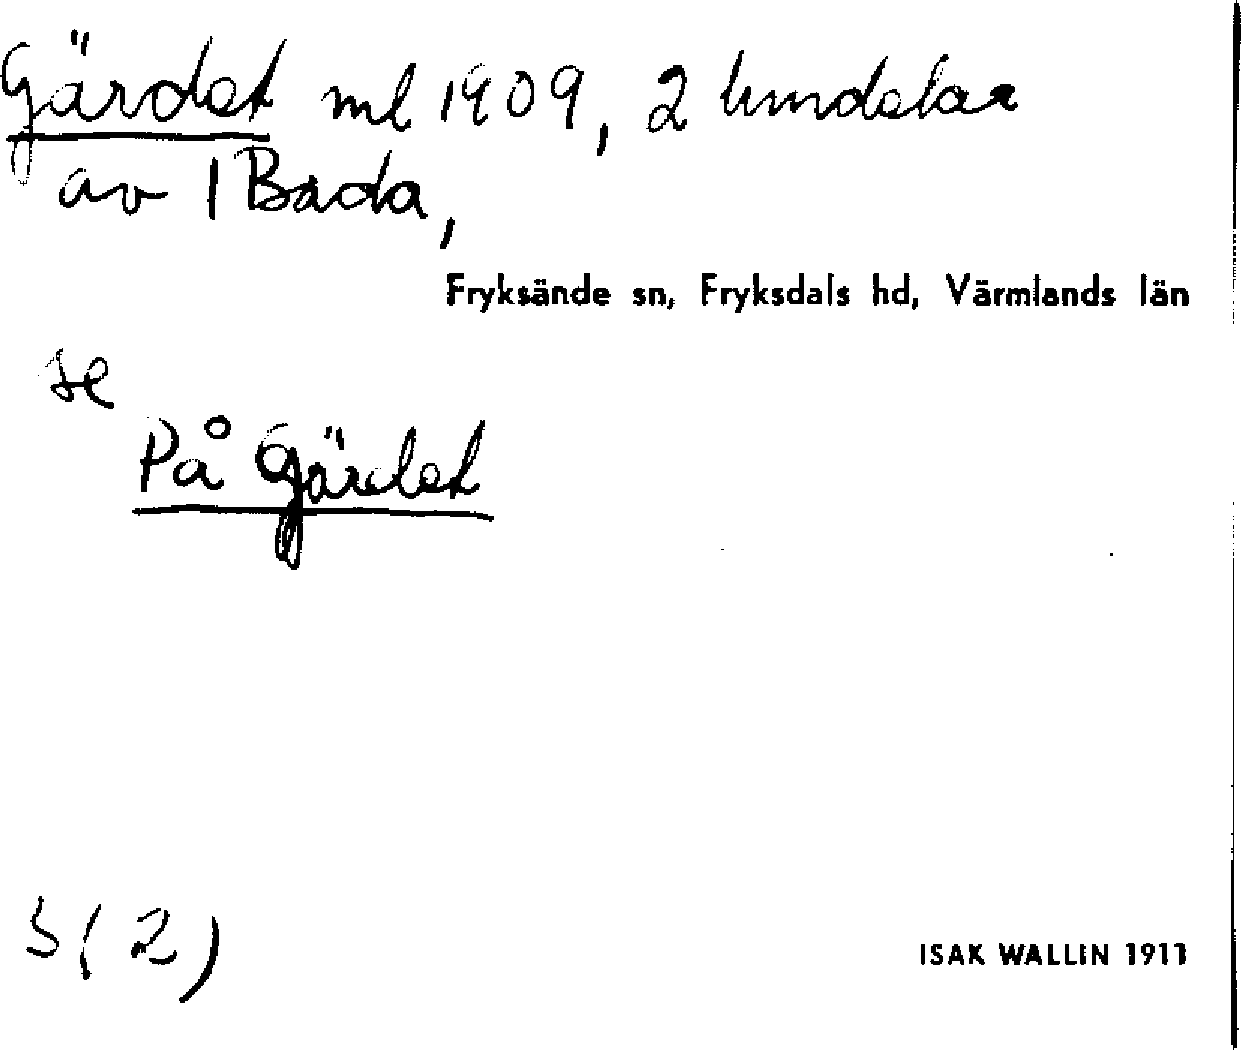 Gärdet ml 1909, 2 lundelar
av 1 Bada,
Fryksände sn, Fryksdals hd, Värmlands län
se
På Gärdet
5(2)
ISAK WALLIN 1911